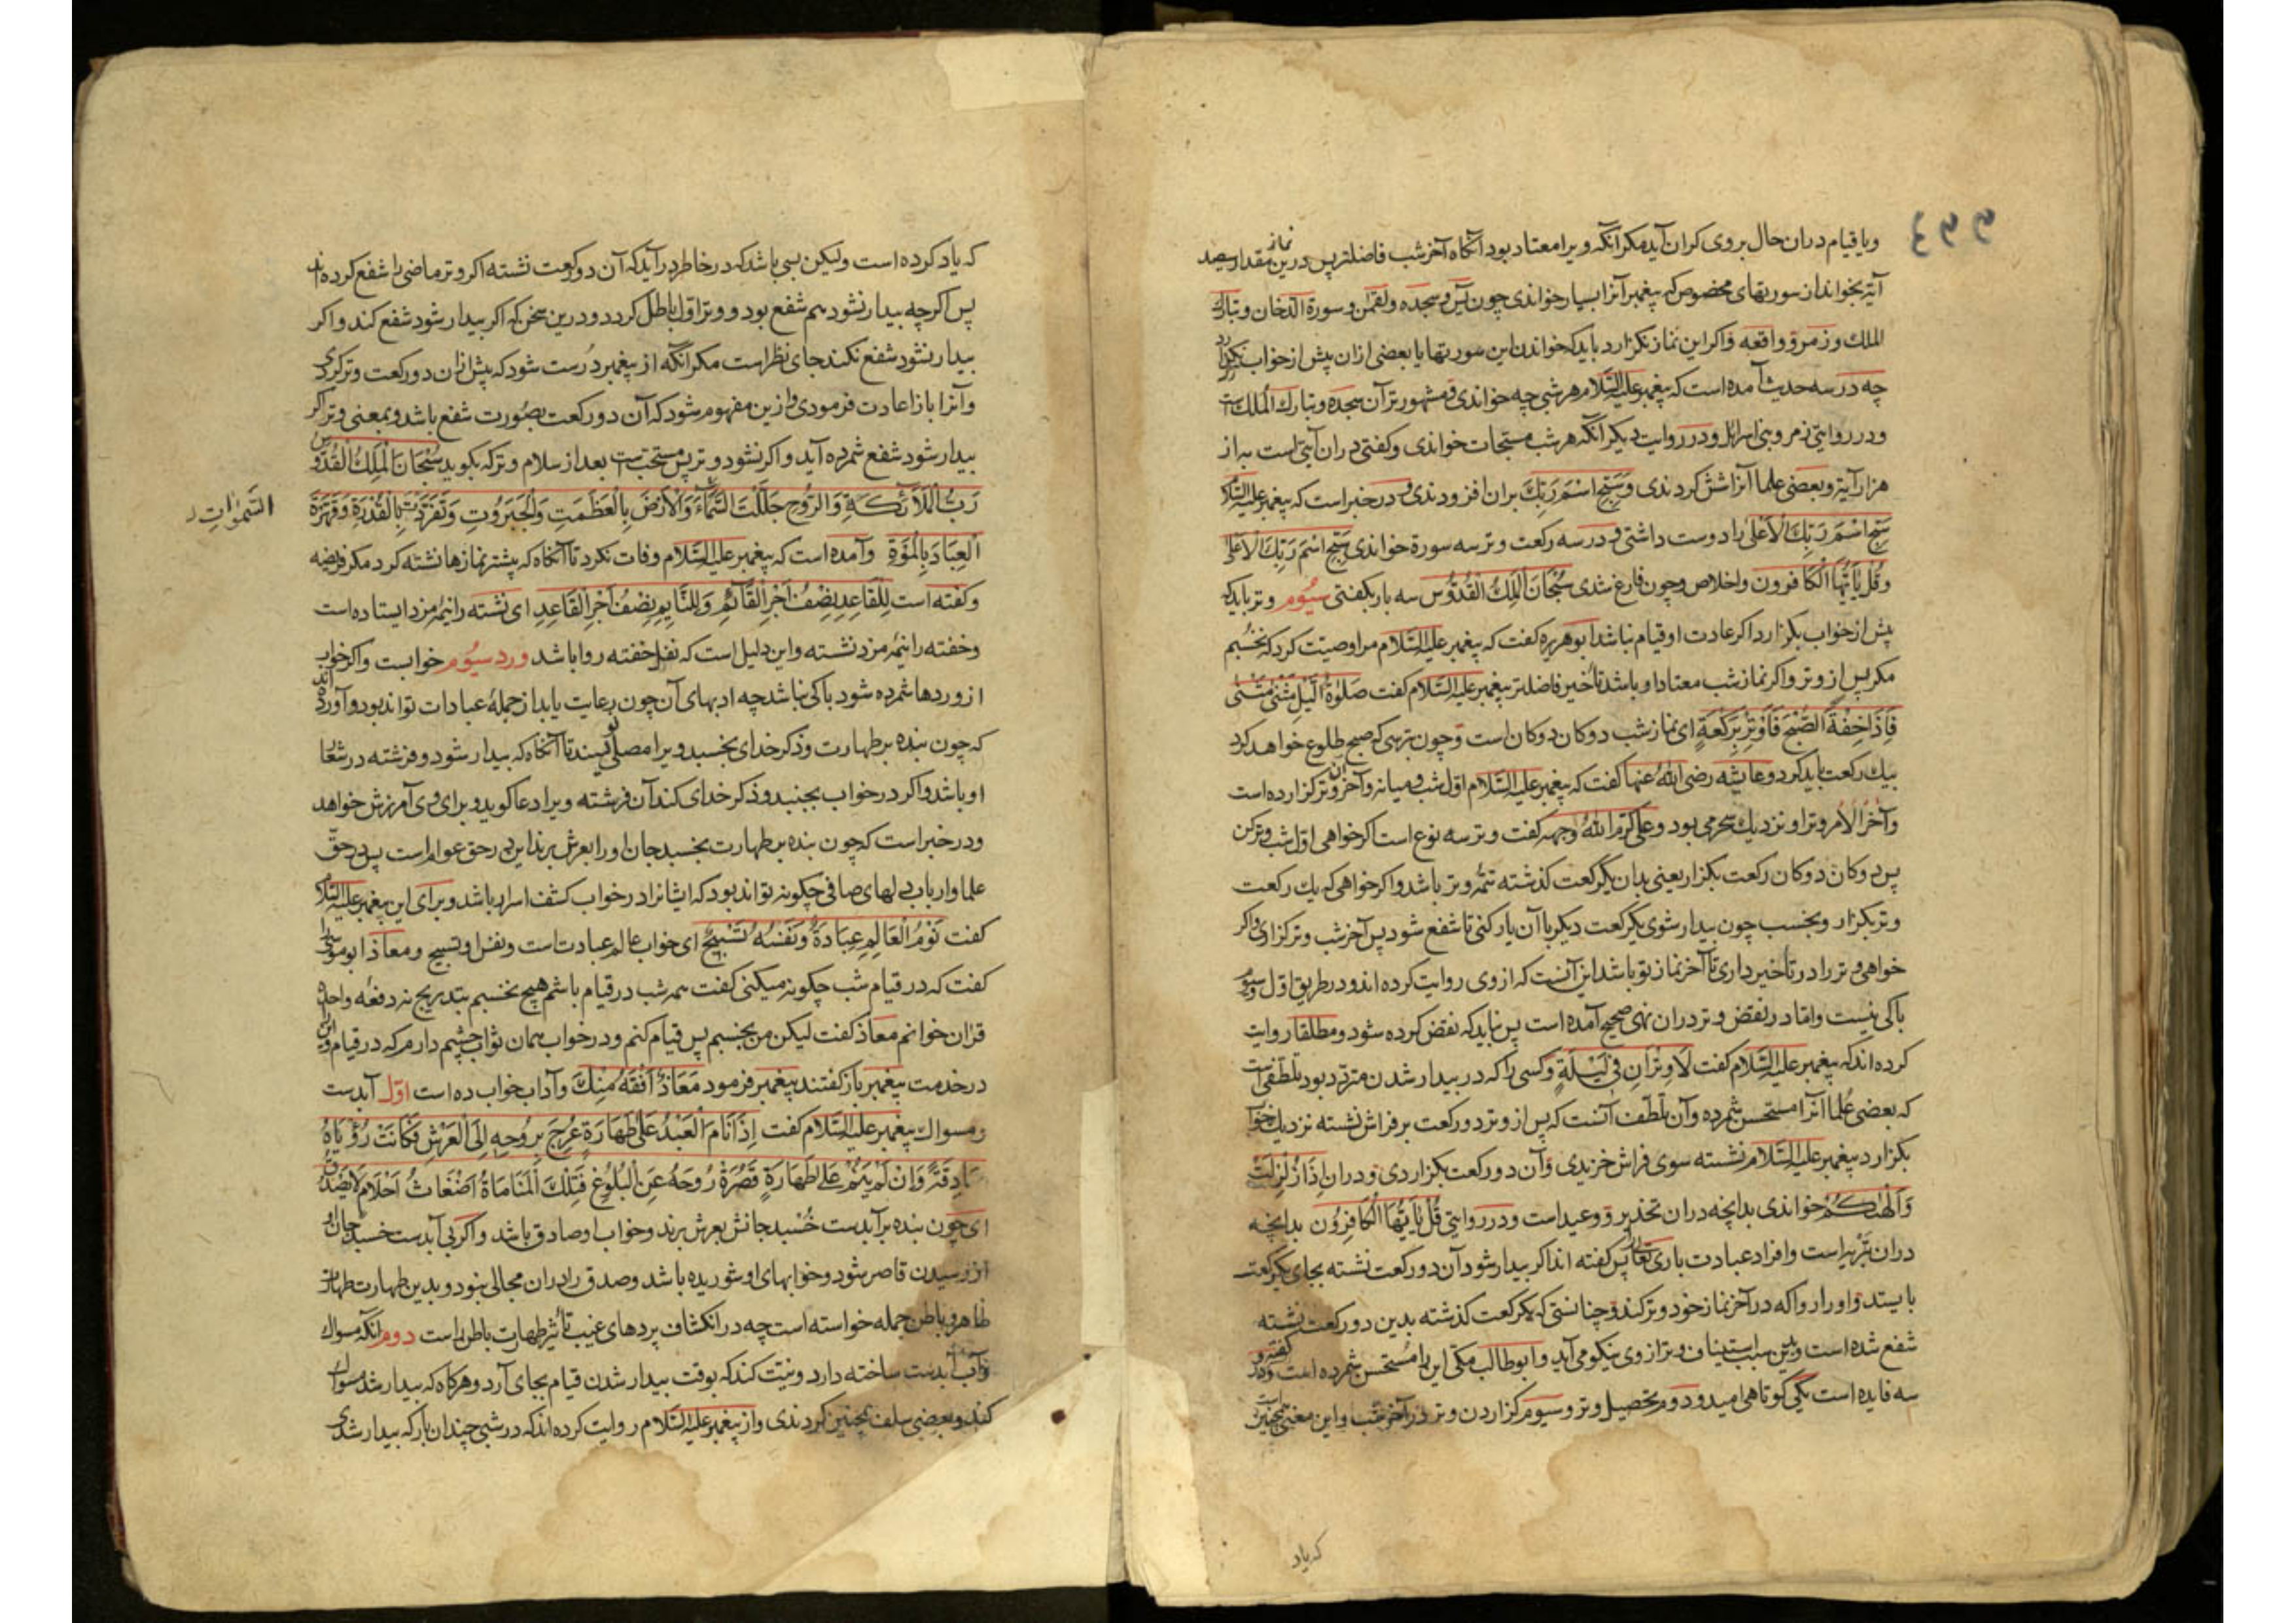 ویا قیام دران حال بروی کران آید مکر آنکه ویرا معتاد بود آنکاه آخر شب فاضلتر پس درین نماز مقدار سیصد
آیة بخواند از سورتهای مخصوص که پیغمبر آنرا بسیار خواندی چون یس و سجده ولقمن و سورة الدخان وتبارك
الملك وزمر و واقعه واکر این نماز نکزارد باید که خواندن این سورتها یا بعضی ازان پیش از خواب
چه در سه حدیث آمده است که پیغمبر علیه السلام هر شبی چه خواندی و مشهورتر آن سجده و تبارك الملك است
ودر روایتی زمر وبنی اسرائل ودر روایت دیکر آنکه هر شب مسبحات خواندی وکفتی دران آیتی است به از
هزار آیة وبعضی علما آنرا شش کردندی وسبح اسم ربك بران افزودندی و در خبر است که پیغمبر علیه السلا
سبح اسم ربك الاعلی را دوست داشتی و در سه رکعت وتر سه سورة خواندی سبح اسم ربك الاعلی
وقل یا ایها الکافرون واخلاص وچون فارغ شدی سبحان الملك القدوس سه بار بکفتی سیوم وتر باید که
پیش از خواب بکزارد اکر عادت او قیام نباشد ابو هریره کفت که پیغمبر علیه السلام مرا وصیت کرد که نخسبم
مکر پس از وتر واکر نماز شب معتاد او باشد تاخیر فاضلتر پیغمبر علیه السلام کفت صلوة اللیل مثنی مثنی
فاذا خفة الصبح فاوتر برکعة ای نماز شب دوکان دوکان است وچون بترسی که صبح طلوع خواهد کرد
بیك رکعت باید کرد وعایشه رضی الله عنها کفت که پیغمبر علیه السلام اول شب ومیانه وآخر وتر کزارده است
وآخر الامر وتر او نزدیك سحر می بود وعلی کرم الله وجهه کفت وتر سه نوع است اکر خواهی اول شب وتر کن
پس دوکان دوکان رکعت بکزار یعنی بدان یکرکعت کذشته تتمه وتر باشد واکر خواهی که یك رکعت
وتر بکزار وبخسب چون بیدار شوی یکرکعت دیکر با آن یار کنی تا شفع شود پس آخر شب وتر کزاری واکر
خواهی وتر را در تاخیر داری تا آخر نماز تو باشد این آنست که از وی روایت کرده اند ودر طریق اول وسیوم
باکی نیست واما در نقض وتر دران نهی صحیح آمده است پس نباید که نقض کرده شود ومطلقا روایت
کرده اند که پیغمبر علیه السلام کفت لا وتران فی لیلة وکسی را که در بیدار شدن متردد بود تلطفی است
که بعضی علما آنرا مستحسن شمرده وآن تلطف آنست که پس از وتر دو رکعت بر فراش نشسته نزدیك خواب
بکزارد پیغمبر علیه السلام نشسته سوی فراش خزیدی وآن دو رکعت بکزاردی ودران اذا زلزلت
والهیکم خواندی بدانچه دران تحذیر و وعید است ودر روایتی قل یا ایها الکافرون بدانچه
دران تبرّیه است وافراد عبادت باری تعالی پس کفته اند اکر بیدار شود آن دو رکعت نشسته بجای یکرکعت
بایستد واو را روا که در آخر نماز خود وتر کند وچنانستی که یکرکعت کذشته بدین دو رکعت نشسته
شفع شده است وبدین سبب استیناف وتر از وی نیکو می آید وابو طالب مکی این را مستحسن شمرده است وکفته که در
سه فایده است یکی کوتاهی امید ودوم تحصیل وتر وسیوم کزاردن وتر در آخر شب واین معنی همچنین است
که یاد
که یاد کرده است ولیکن بسی باشد که در خاطر درآید که آن دو رکعت نشسته اکر وتر ماضی را شفع کرده
پس اکرچه بیدار نشود هم شفع بود و وتر اول باطل کردد ودرین سخن که اکر بیدار شود شفع کند واکر
بیدار نشود شفع نکند جای نظر است مکر آنکه از پیغمبر درست شود که پیش ازان دو رکعت وتر کردی
وآنرا باز اعادت فرمودی وازین مفهوم شود که آن دو رکعت بصورت شفع باشد وبمعنی وتر اکر
بیدار شود شفع شمرده آید واکر نشود وتر پس مستحب است بعد از سلام وتر که بکوید سبحان الملك القدوس
رب الملائکة والروح جللت السماء والارض بالعظمت والجبروت وتفردت بالقدرة وقهرة
السموات
العباد بالموة وآمده است که پیغمبر علیه السلام وفات نکرد تا آنکاه که بیشتر نمازها نشسته کرد مکر فریضه
وکفته است للقاعد نصف اجر القائم وللنایم نصف اجر القاعد ای نشسته را نیمه مزد ایستاده است
وخفته را نیمه مزد نشسته واین دلیل است که نفل خفته روا باشد ورد سیوم خوابست واکر خواب
از وردها شمرده شود باکی نباشد چه ادبهای آن چون برعایت یابد از جمله عبادات تواند بود وآورده اند
که چون بنده بر طهارت وذکر خدای بخسبد ویرا مصلی نویسند تا آنکاه که بیدار شود وفرشته در شعار
او باشد واکر در خواب بجنبد وذکر خدای کند آن فرشته ویرا دعا کوید وبرای وی آمرزش خواهد
ودر خبر است که چون بنده بر طهارت بخسبد جان او را بعرش برند این در حق عوام است پس در حق
علما وارباب دلهای صافی چکونه تواند بود که ایشانرا در خواب کشف اسرار باشد وبرای این پیغمبر علیه السلام
کفت نوم العالم عبادة ونفسه تسبیح ای خواب عالم عبادت است ونفس او تسبیح ومعاذ ابو موسی را
کفت که در قیام شب چکونه میکنی کفت همه شب در قیام باشم هیچ نخسبم بتدریج نه دفعه واحده
قران خوانم معاذ کفت لیکن من بخسبم پس قیام کنم ودر خواب همان ثواب چشم دارم که در قیام
در خدمت پیغمبر باز کفتند پیغمبر فرمود معاذ افقه منك وآداب خواب ده است اول آبدست
ومسواك پیغمبر علیه السلام کفت اذا نام العبد علی طهارة عرج بروحه الی العرش فکانت رؤیاه
صادقة وان لم ینم علی طهارة قصرة روحه عن البلوغ فتلك المنامات اضغاث احلام لا یصدق
ای چون بنده بر آبدست خسبد جانش بعرش برند وخواب او صادق باشد واکر بی آبدست خسبد جان او
از رسیدن قاصر شود وخوابهای او شوریده باشد وصدق را دران مجالی نبود وبدین طهارت طهارت
ظاهر وباطن جمله خواسته است چه در انکشاف پردهای غیب تأثیر طهارت باطن راست دوم آنکه مسواك
وآب آبدست ساخته دارد ونیت کند که بوقت بیدار شدن قیام بجای آرد وهرکاه که بیدار شد مسواك
کند وبعضی سلف همچنین کردندی واز پیغمبر علیه السلام روایت کرده اند که در شبی چندان بار که بیدار شدی